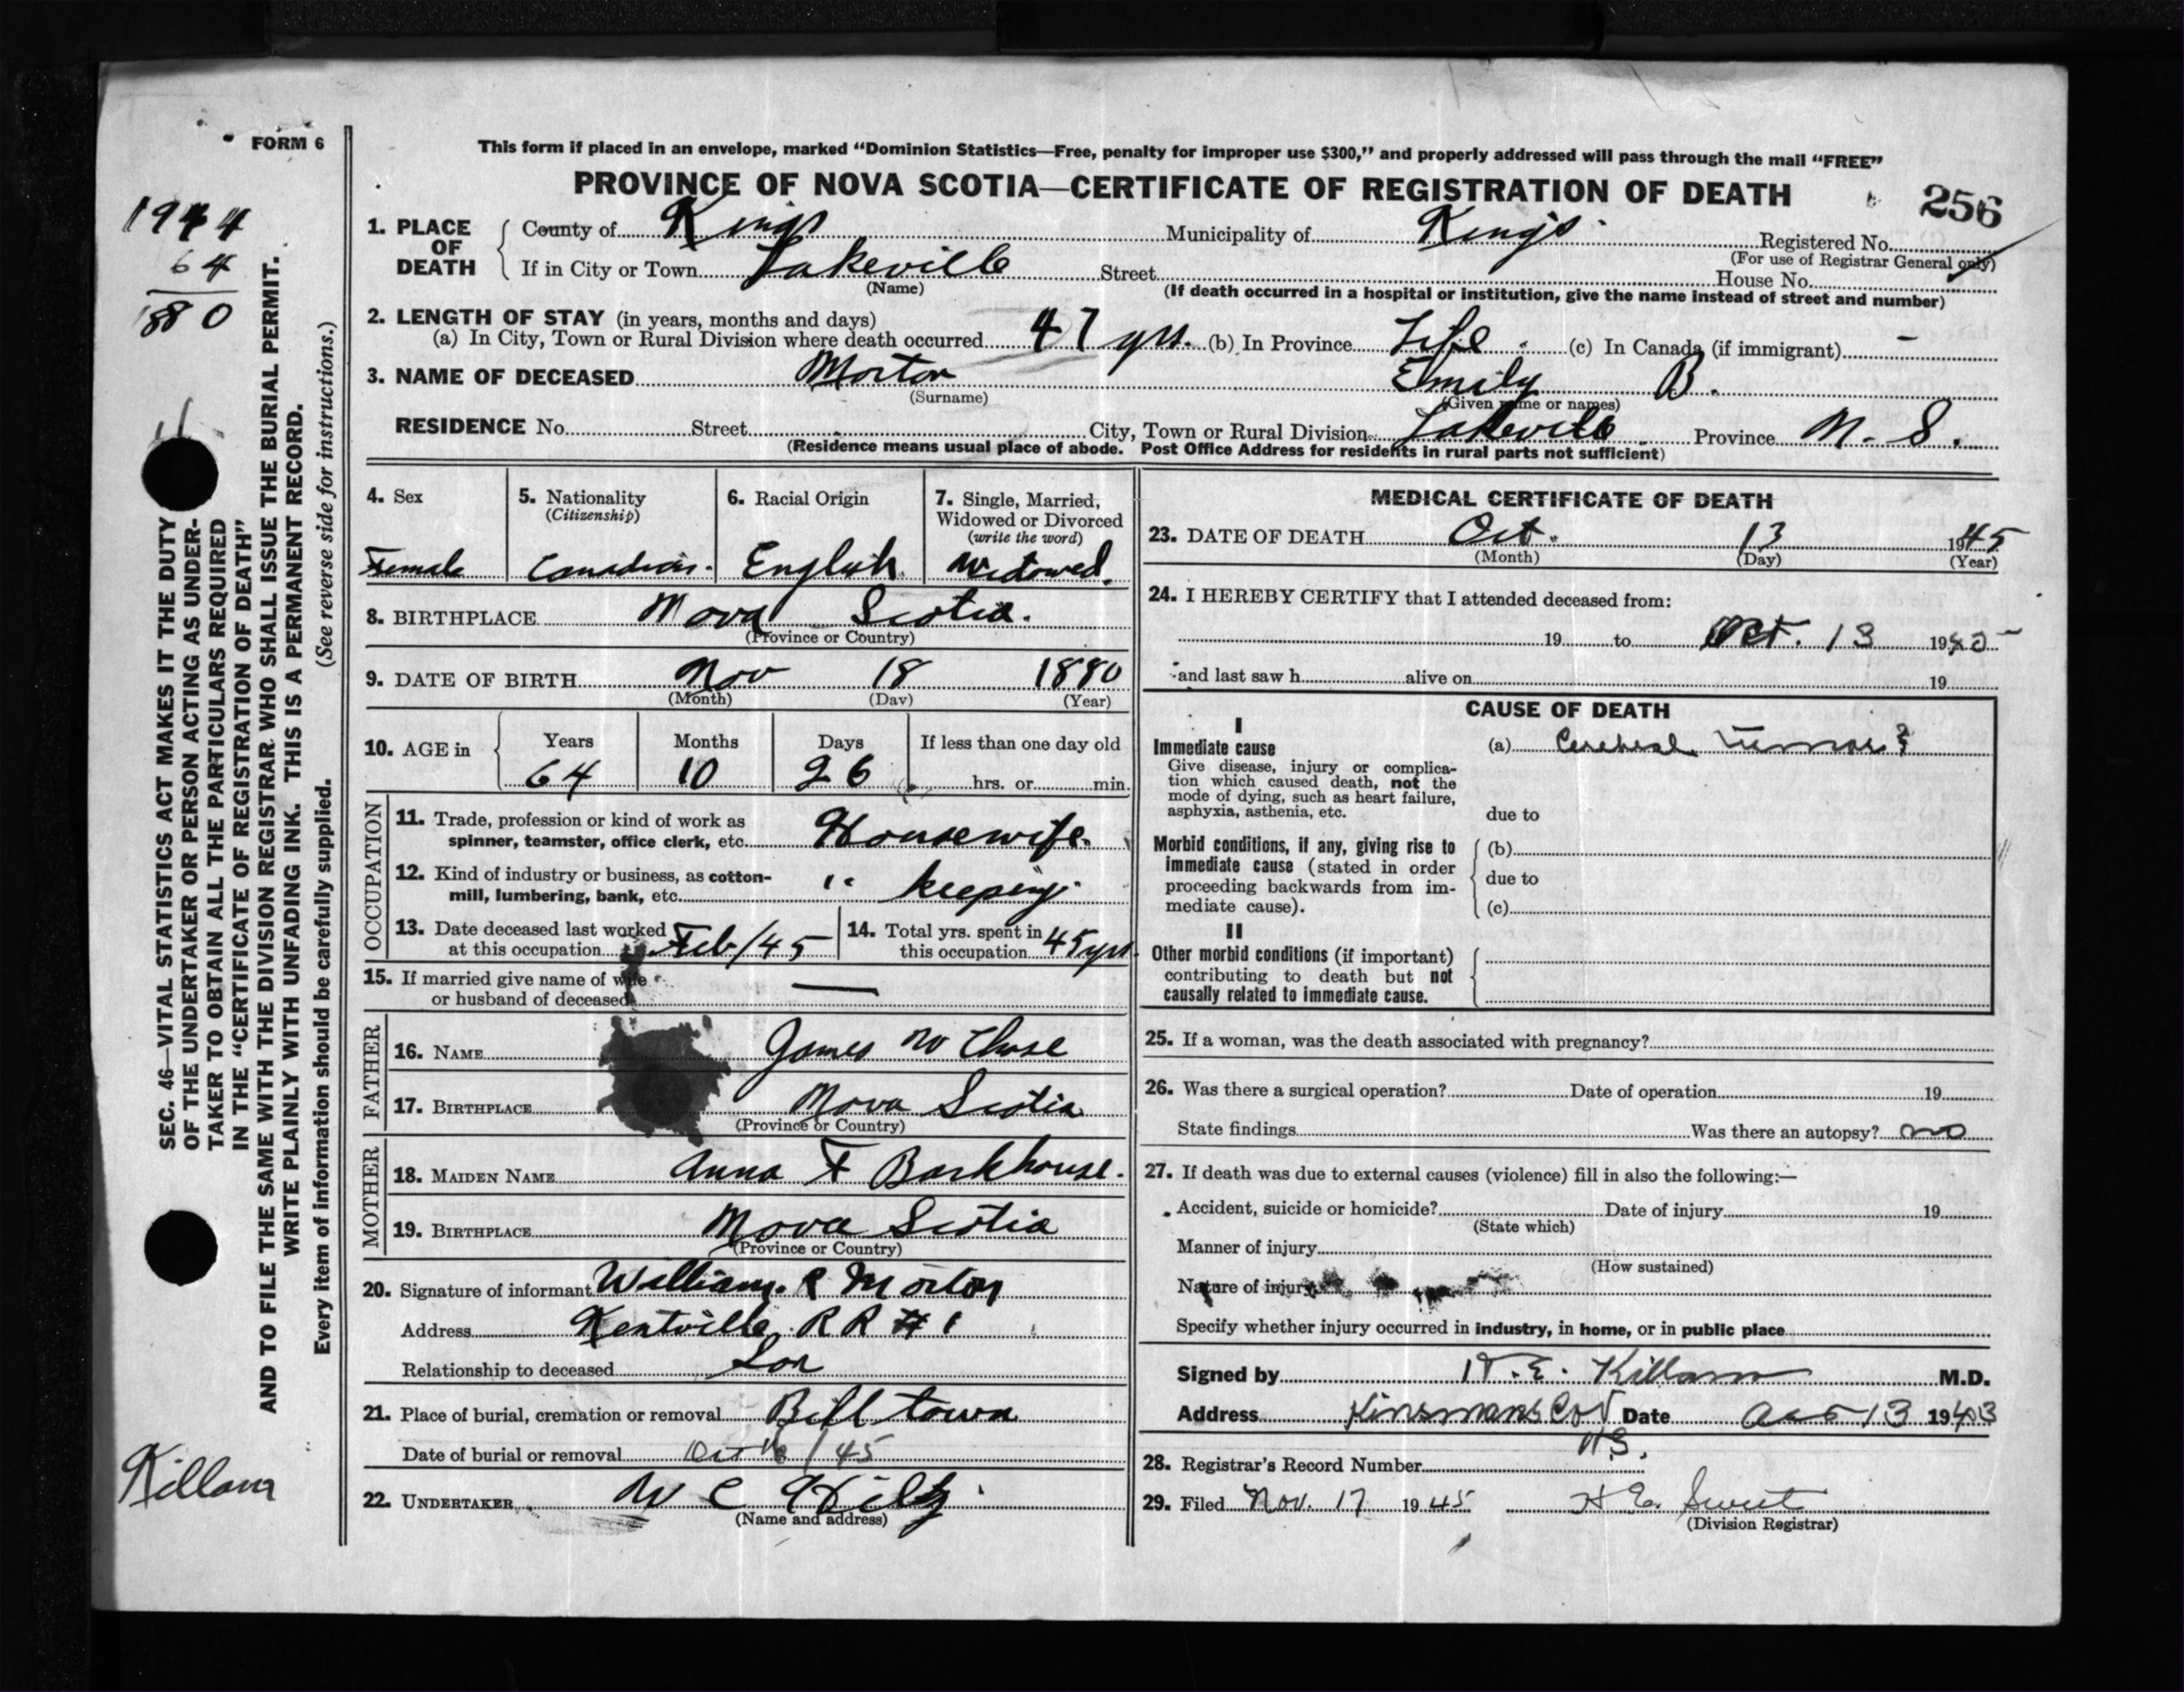 FORM 6
This form if placed in an envelope, marked “Dominion Statistics—Free, penalty for improper use $300,” and properly addressed will pass through the mail “FREE”
PROVINCE OF NOVA SCOTIA—CERTIFICATE OF REGISTRATION OF DEATH
256
1944
64
1880
1. PLACE OF DEATH
County of Kings Municipality of Kings Registered No.
(For use of Registrar General only)
If in City or Town Lakeville Street House No.
(Name)
(If death occurred in a hospital or institution, give the name instead of street and number)
2. LENGTH OF STAY (in years, months and days)
(a) In City, Town or Rural Division where death occurred 47 yrs. (b) In Province Life. (c) In Canada (if immigrant) -
3. NAME OF DECEASED Morton Emily B.
(Surname) (Given name or names)
RESIDENCE No. Street City, Town or Rural Division Lakeville Province N. S.
(Residence means usual place of abode. Post Office Address for residents in rural parts not sufficient)
SEC. 46—VITAL STATISTICS ACT MAKES IT THE DUTY
OF THE UNDERTAKER OR PERSON ACTING AS UNDER-
TAKER TO OBTAIN ALL THE PARTICULARS REQUIRED
IN THE “CERTIFICATE OF REGISTRATION OF DEATH”
AND TO FILE THE SAME WITH THE DIVISION REGISTRAR WHO SHALL ISSUE THE BURIAL PERMIT.
WRITE PLAINLY WITH UNFADING INK. THIS IS A PERMANENT RECORD.
Every item of information should be carefully supplied. (See reverse side for instructions.)
Killam
4. Sex
Female
5. Nationality
(Citizenship)
Canadian.
6. Racial Origin
English
7. Single, Married,
Widowed or Divorced
(write the word)
Widowed.
8. BIRTHPLACE Nova Scotia.
(Province or Country)
9. DATE OF BIRTH Nov 18 1880
(Month) (Day) (Year)
10. AGE in
Years Months Days If less than one day old
64 10 26 hrs. or min.
OCCUPATION
11. Trade, profession or kind of work as
spinner, teamster, office clerk, etc. Housewife
12. Kind of industry or business, as cotton-
mill, lumbering, bank, etc. " keeping
13. Date deceased last worked
at this occupation Feb/45
14. Total yrs. spent in
this occupation 45 yrs
15. If married give name of wife
or husband of deceased —
FATHER
16. NAME James W Chase
17. BIRTHPLACE Nova Scotia
(Province or Country)
MOTHER
18. MAIDEN NAME Anna F Barkhouse.
19. BIRTHPLACE Nova Scotia
(Province or Country)
20. Signature of informant William R Morton
Address Kentville RR # 1
Relationship to deceased Son
21. Place of burial, cremation or removal Billtown
Date of burial or removal Oct 16/45
22. UNDERTAKER W C Hiltz
(Name and address)
MEDICAL CERTIFICATE OF DEATH
23. DATE OF DEATH Oct. 13 1945
(Month) (Day) (Year)
24. I HEREBY CERTIFY that I attended deceased from:
19 to Oct. 13 1945
and last saw h alive on 19
CAUSE OF DEATH
I
Immediate cause
Give disease, injury or complica-
tion which caused death, not the
mode of dying, such as heart failure,
asphyxia, asthenia, etc.
(a) Cerebral Tumor?
due to
Morbid conditions, if any, giving rise to
immediate cause (stated in order
proceeding backwards from im-
mediate cause).
(b)
due to
(c)
II
Other morbid conditions (if important)
contributing to death but not
causally related to immediate cause.
25. If a woman, was the death associated with pregnancy?
26. Was there a surgical operation? Date of operation 19
State findings Was there an autopsy? no
27. If death was due to external causes (violence) fill in also the following:—
Accident, suicide or homicide? Date of injury 19
(State which)
Manner of injury
(How sustained)
Nature of injury
Specify whether injury occurred in industry, in home, or in public place
Signed by Killam M.D.
Address Kinsmans Cor Date Oct 13 19
N.S.
28. Registrar's Record Number
29. Filed Nov. 17 1945 H E. Sweet
(Division Registrar)